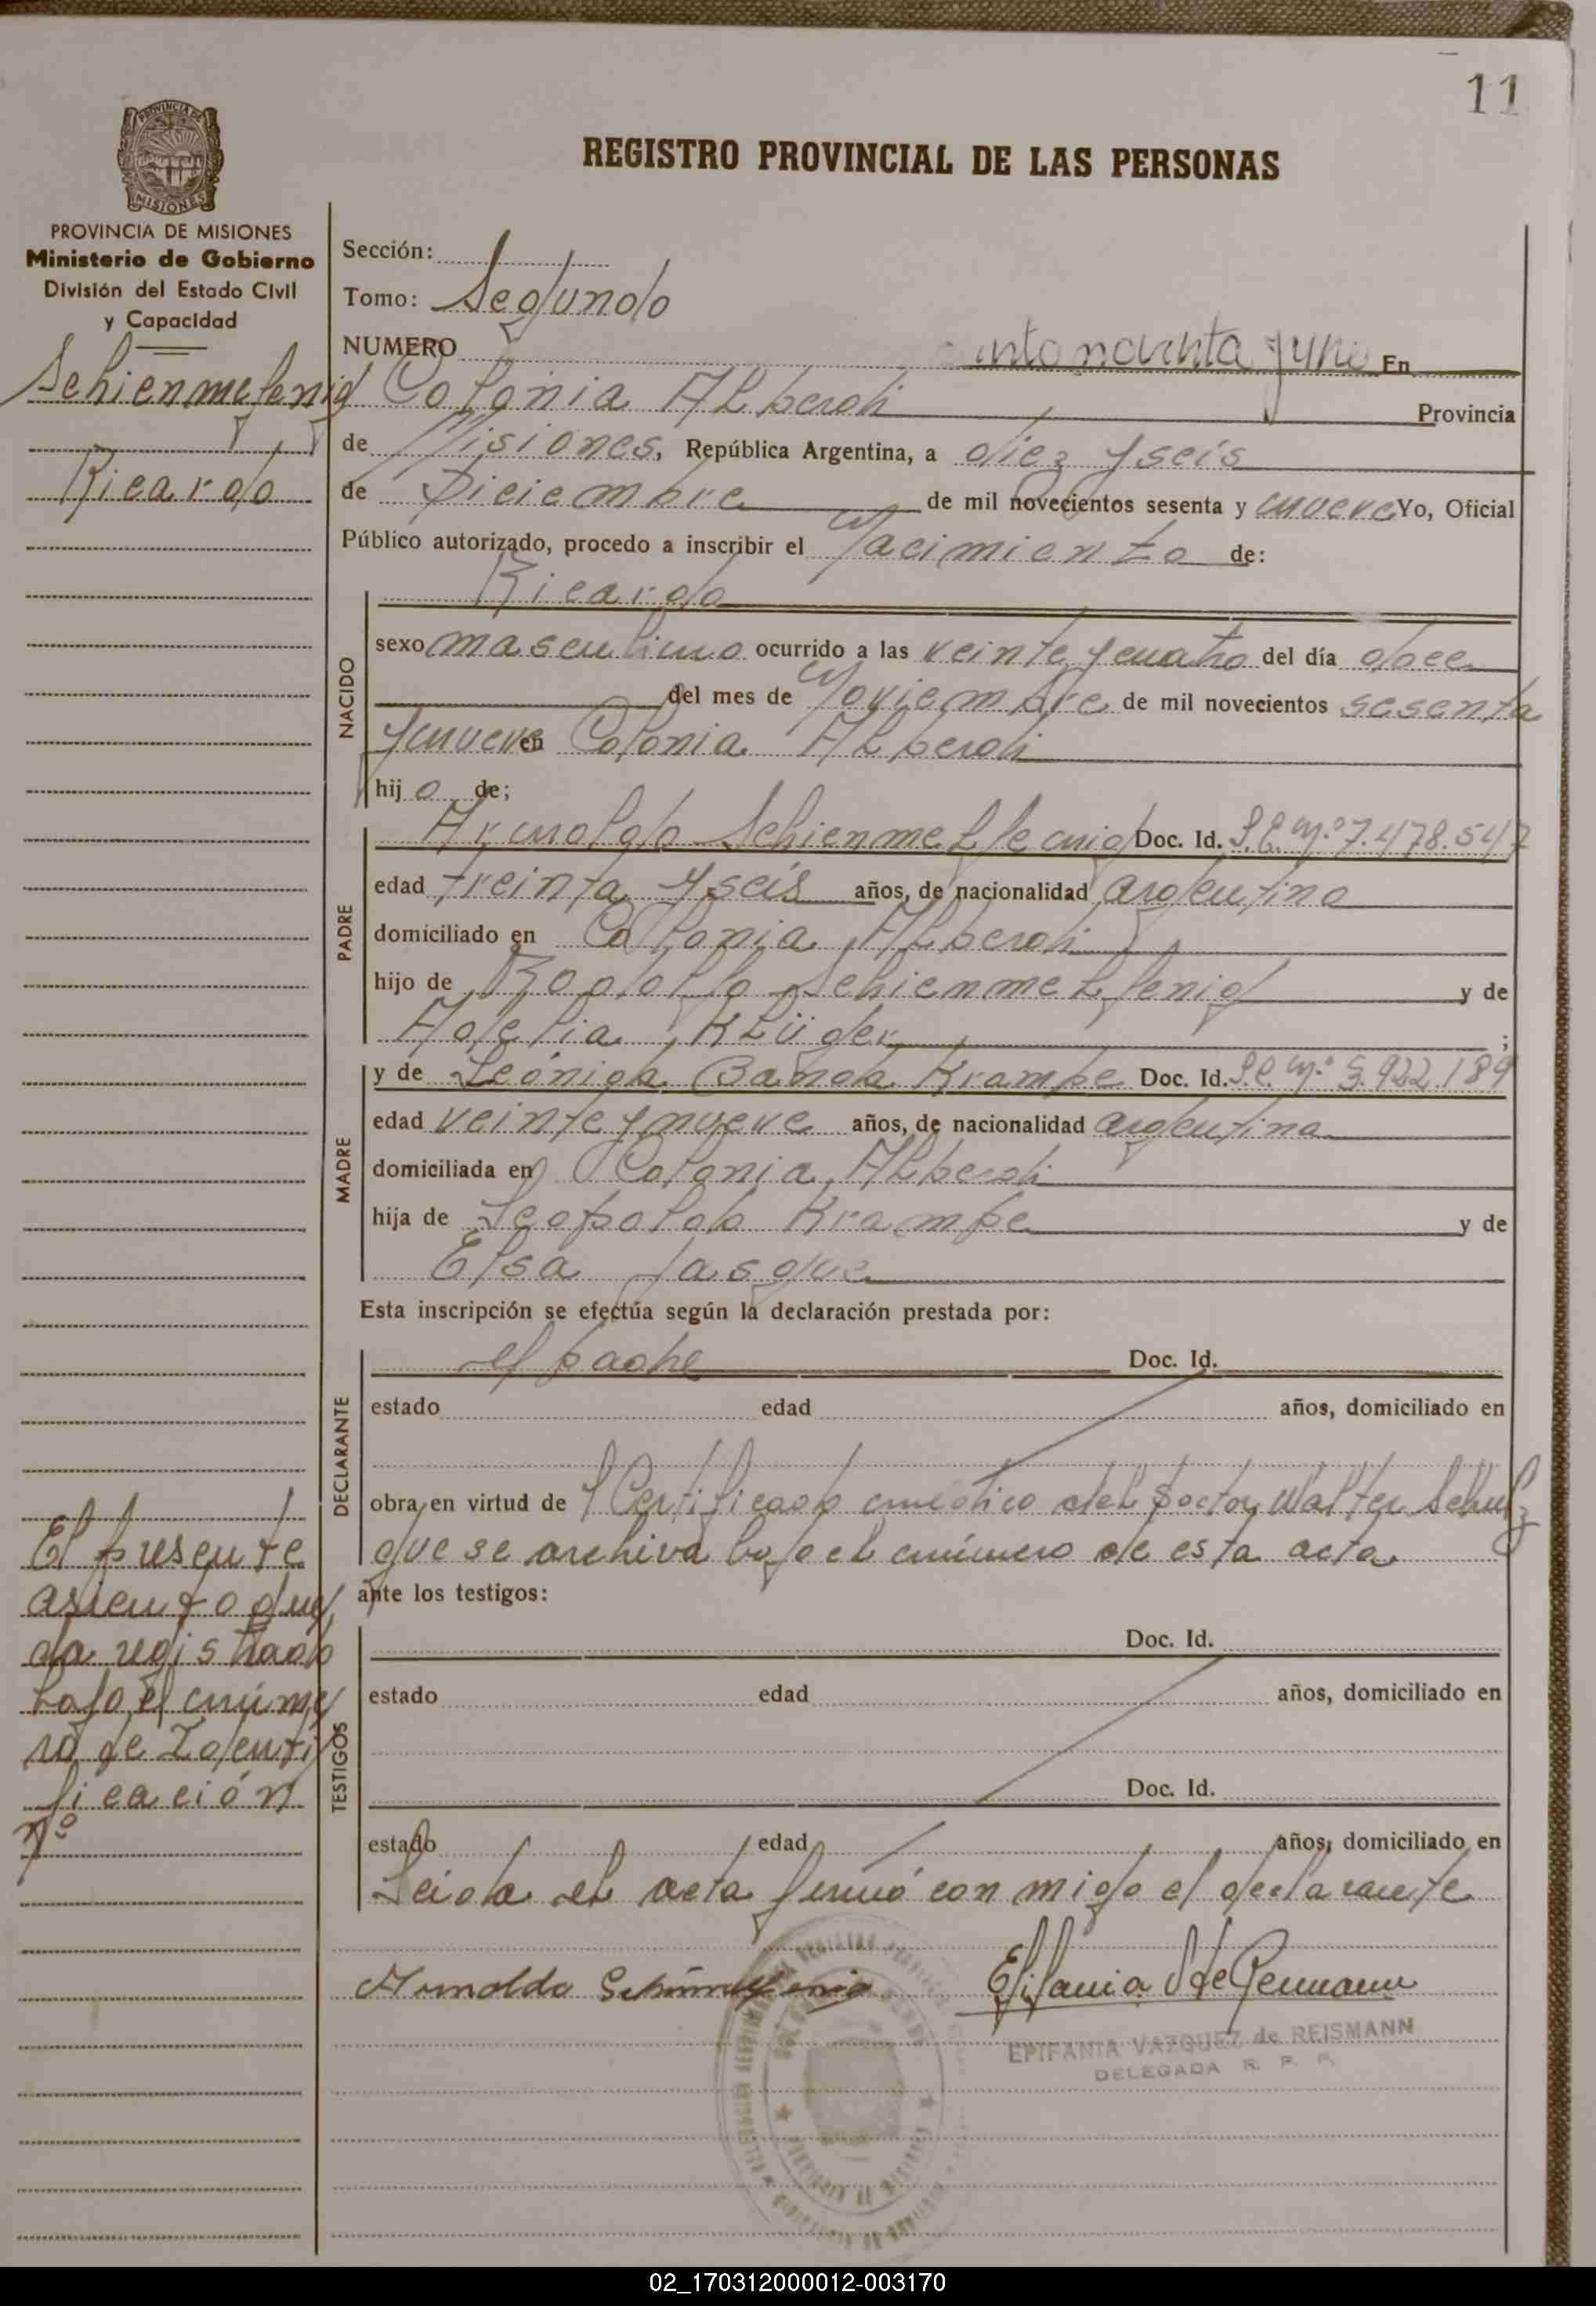 11
REGISTRO PROVINCIAL DE LAS PERSONAS
PROVINCIA DE MISIONES
Ministerio de Gobierno
División del Estado Civil
y Capacidad
Schienmefenig
Ricardo
Sección:
Tomo: Segundo
NUMERO ciento noventa y uno En
Colonia Alberdi Provincia
de Misiones, República Argentina, a diez y seis
de Diciembre de mil novecientos sesenta y nueve Yo, Oficial
Público autorizado, procedo a inscribir el Nacimiento de:
Ricardo
NACIDO
sexo masculino ocurrido a las veinte y cuatro del día doce
del mes de Noviembre de mil novecientos sesenta
y nueve en Colonia Alberdi
hijo de;
PADRE
Arnoldo Schienmelfenig Doc. Id. L.E. Nº 7.478.547
edad treinta y seis años, de nacionalidad argentina
domiciliado en Colonia Alberdi
hijo de Rodolfo Schienmelfenig y de
Adelia Klüger ;
MADRE
y de Leónida Banda Krampe Doc. Id. L.C. Nº 5.922.189
edad veinte y nueve años, de nacionalidad argentina
domiciliada en Colonia Alberdi
hija de Leopoldo Krampe y de
Elsa Jasque
Esta inscripción se efectúa según la declaración prestada por:
DECLARANTE
el padre Doc. Id.
estado edad años, domiciliado en
obra en virtud de Certificado médico del Doctor Walter Schulz
que se archiva bajo el número de esta acta
ante los testigos:
TESTIGOS
Doc. Id.
estado edad años, domiciliado en
Doc. Id.
estado edad años, domiciliado en
Leida el acta firmó con migo el declarante
El presente
asiento que
da registrado
bajo el núme
ro de Identi
ficación
nº
Arnoldo
EPIFANIA VAZQUEZ de REISMANN
DELEGADA R. P. P.
02_170312000012-003170